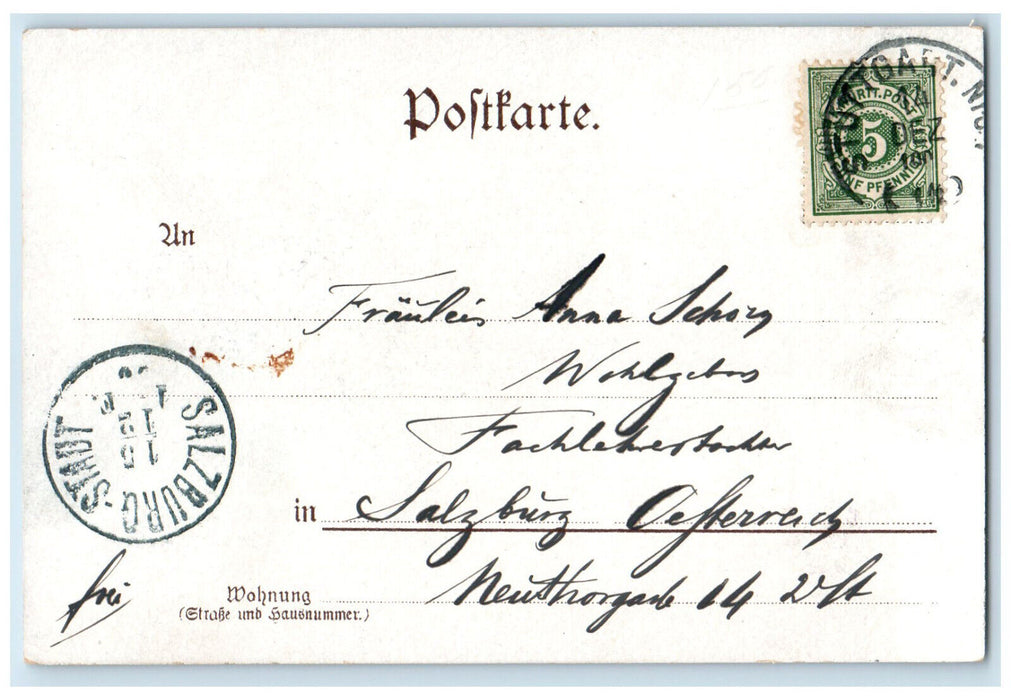 Postkarte.
STUTTGART. No. 1
14
DEZ
K. WÜRTT. POST
5
FÜNF PFENNIG
An
Fräulein Anna
Wohlgebor
Fachlehrerstochter
in Salzburg Oesterreich
SALZBURG-STADT
15 12
frei
Wohnung
(Straße und Hausnummer.)
Neuthorgasse 14 2. St